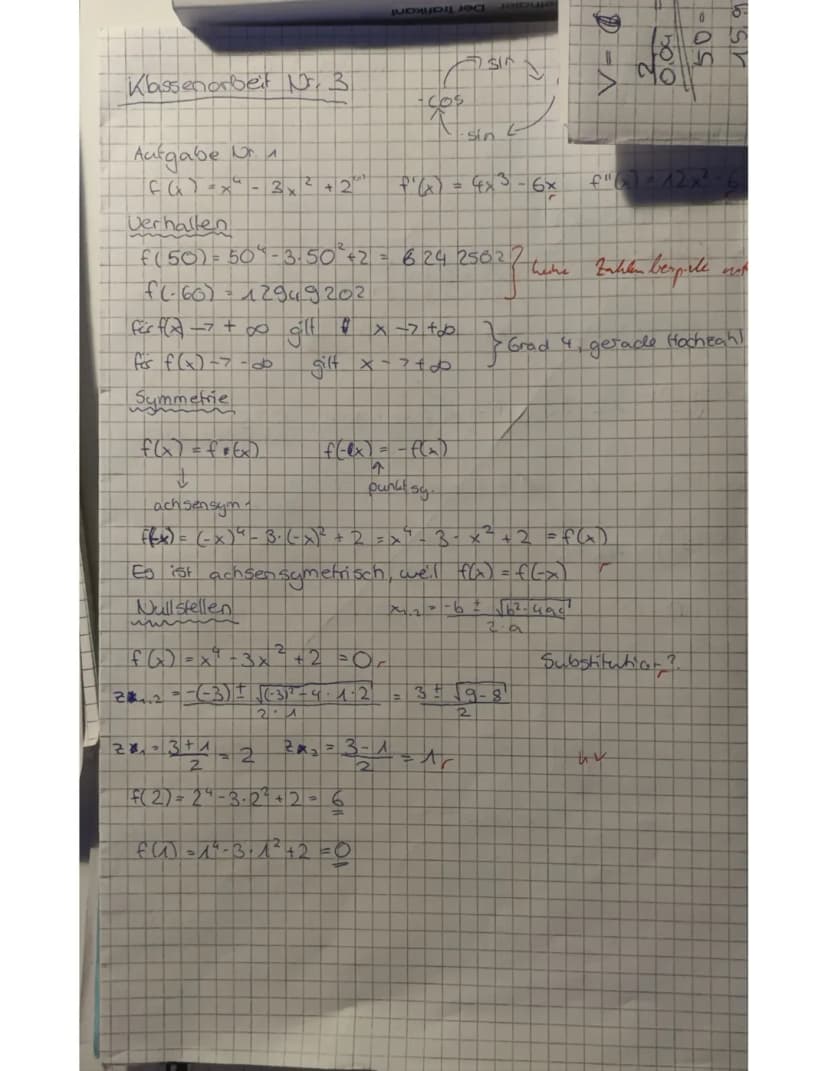 Der Trafikant
V =
2
0.05
50 =
15.9
Klassenarbeit Nr. 3
sin
-cos
-sin
Aufgabe Nr. 1
f(x) = x⁴ - 3x² + 2 f'(x) = 4x³ - 6x f''(x) = 12x² - 6
Verhalten
f(50) = 50⁴ - 3·50² + 2 = 6242502 } keine Zahlenbeispiele
f(-60) = 12949202
für f(x) -> + ∞ gilt x -> +∞ } Grad 4, gerade Hochzahl
für f(x) -> -∞ gilt x -> +∞
Symmetrie
f(x) = f(-x) f(-x) = -f(x)
↓ ↑
punktsy.
achsensym.
f(-x) = (-x)⁴ - 3·(-x)² + 2 = x⁴ - 3 · x² + 2 = f(x)
Es ist achsensymetrisch, weil f(x) = f(-x) r
Nullstellen x₁.₂ = (-b ± √(b² - 4ac)) / (2·a)
f(x) = x⁴ - 3x² + 2 = 0 r Substitution?
z₁.₂ = (-(-3) ± √((-3)² - 4 · 1 · 2)) / (2 · 1) = (3 ± √(9 - 8)) / 2
z₁ = (3 + 1) / 2 = 2 z₂ = (3 - 1) / 2 = 1 r uv
f(2) = 2⁴ - 3·2² + 2 = 6
f(1) = 1⁴ - 3·1² + 2 = 0